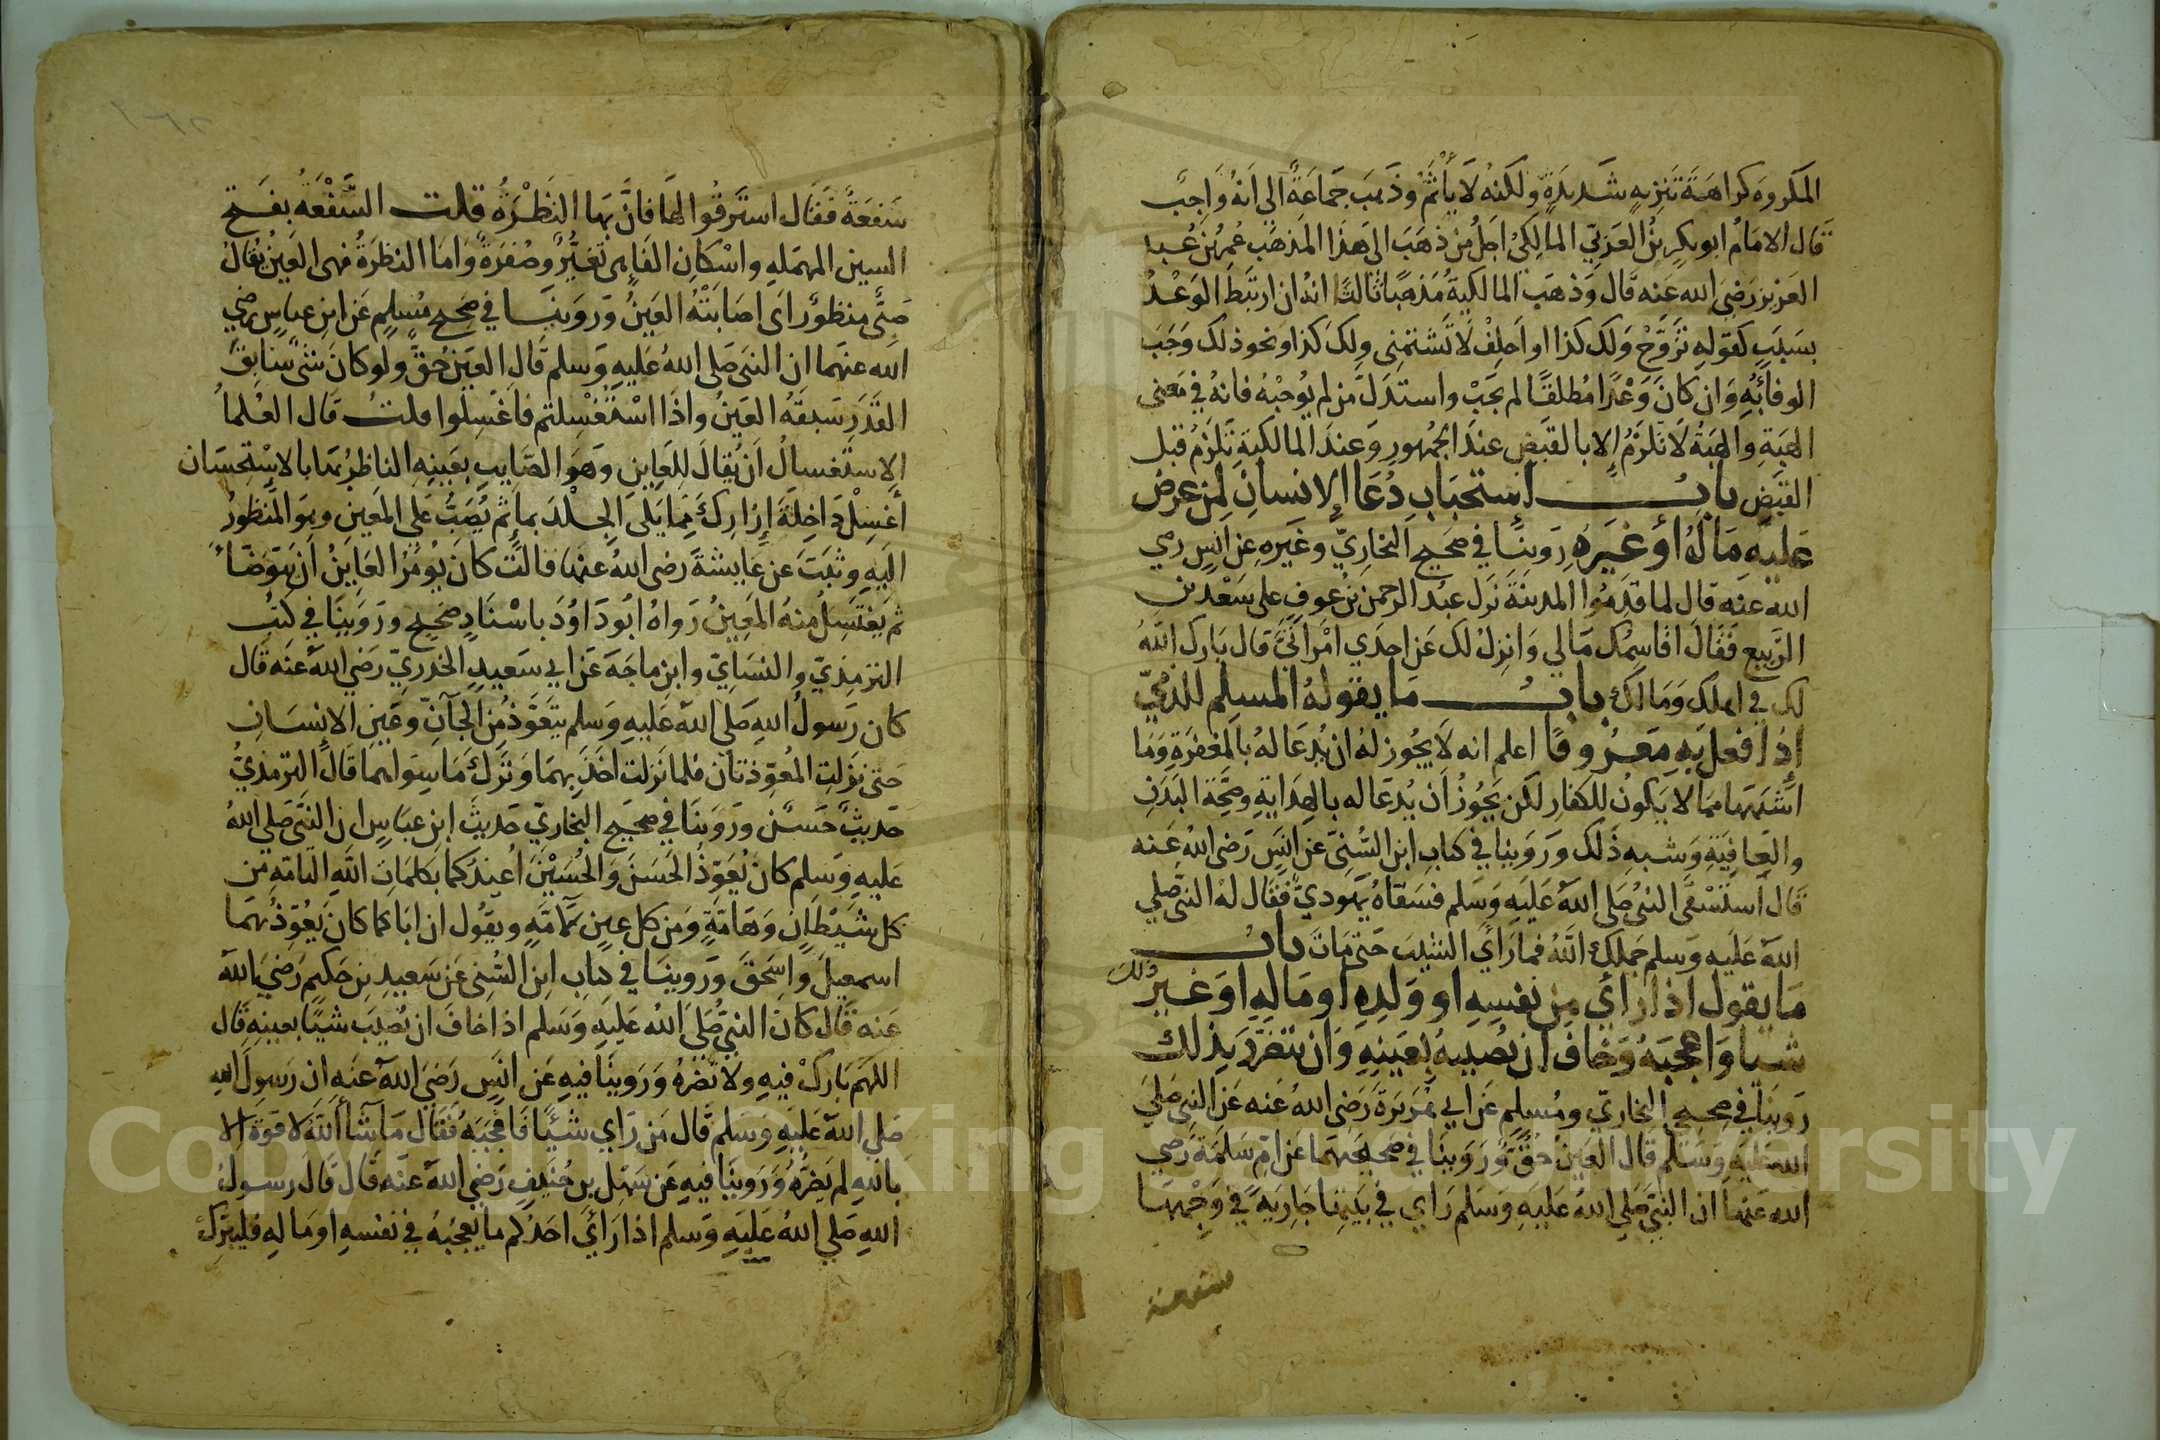 المكروه كراهة تنزيه شديدة ولكنه لا يأثم وذهب جماعة الي انه واجب
قال الامام ابو بكر بن العربي المالكي اجل من ذهب الى هذا المذهب عمر بن عبد
العزيز رضي الله عنه قال وذهب المالكية مذهبا ثالثا انه ان ارتبط الوعد
بسبب كقوله تزوج ولك كذا او احلف لا تشتمني ولك كذا ونحو ذلك وجب
الوفا به وان كان وعدا مطلقا لم يجب واستدل من لم يوجبه فانه في معنى
الهبة والهبة لا تلزم إلا بالقبض عند الجمهور وعند المالكية تلزم قبل
القبض باب استحباب دعا الإنسان لمن عرض
عليه ماله أو غيره روينا في صحيح البخاري وغيره عن انس رضي
الله عنه قال لما قدموا المدينة نزل عبد الرحمن بن عوف على سعد بن
الربيع فقال اقاسمك مالي وانزل لك عن احدي امراتيّ قال بارك الله
لك في اهلك ومالك باب ما يقوله المسلم للذمي
إذا فعل به معروفا اعلم انه لا يجوز له ان يدعا له بالمغفرة وما
اشبهها مما لا يكون للكفار لكن يجوز أن يدعا له بالهداية وصحة البدن
والعافية وشبه ذلك وروينا في كتاب ابن السني عن انس رضى الله عنه
قال استسقى النبي صلى الله عليه وسلم فسقاه يهودي فقال له النبي صلي
الله عليه وسلم جملك الله فما رأي الشيب حتى مات باب
ما يقول اذا رأي من نفسه او ولده او ماله او غير ذلك
شيا واعجبه وخاف ان يصيبه بعينه وان يتضرر بذلك
روينا في صحيح البخاري ومسلم عن ابي هريرة رضى الله عنه عن النبي صلي
الله عليه وسلم قال العين حق وروينا في صحيحيهما عن ام سلمة رضي
الله عنها ان النبي صلي الله عليه وسلم راي في بيتها جارية في وجهها
سفعة
سفعة فقال استرقوا لها فان بها النظرة قلت السفعة بفتح
السين المهملة واسكان الفا هي تغير وصفرة واما النظرة فهي العين يقال
صبي منظور اى اصابته العين وروينا في صحيح مسلم عن ابن عباس رضي
الله عنهما ان النبي صلى الله عليه وسلم قال العين حق ولو كان شى سابق
القدر سبقته العين واذا استغسلتم فاغسلوا قلت قال العلما
الاستغسال أن يقال للعاين وهو الصايب بعينه الناظر بها بالاستحسان
أغسل داخلة إزارك مما يلى الجلد بما ثم يصب على المعين وهو المنظور
اليه وثبت عن عايشة رضى الله عنها قالت كان يومر العاين ان يتوضأ
ثم يغتسل منه المعين رواه ابو داود باسناد صحيح وروينا في كتب
الترمذي والنساي وابن ماجه عن ابي سعيد الخدري رضي الله عنه قال
كان رسول الله صلى الله عليه وسلم يتعوذ من الجآن وعين الإنسان
حتى نزلت المعوذتان فلما نزلت اخذ بهما وترك ما سواهما قال الترمذي
حديث حسن وروينا في صحيح البخاري حديث ابن عباس ان النبي صلي الله
عليه وسلم كان يعوذ الحسن والحسين أعيذكما بكلمات الله التامة من
كل شيطان وهامة ومن كل عين لآمة ويقول ان اباكما كان يعوذ بهما
اسمعيل واسحق وروينا في كتاب ابن السني عن سعيد بن حكيم رضي الله
عنه قال كان النبي صلى الله عليه وسلم اذا خاف ان يصيب شيئا بعينه قال
اللهم بارك فيه ولا تضره وروينا فيه عن انس رضى الله عنه ان رسول الله
صلي الله عليه وسلم قال من راي شيئا فاعجبه فقال ما شآ الله لا قوة الا
بالله لم يضره وروينا فيه عن سهل بن حنيف رضى الله عنه قال قال رسول
الله صلي الله عليه وسلم اذا رأي احدكم ما يعجبه في نفسه او ماله فليبرك
Copyright © King Saud University